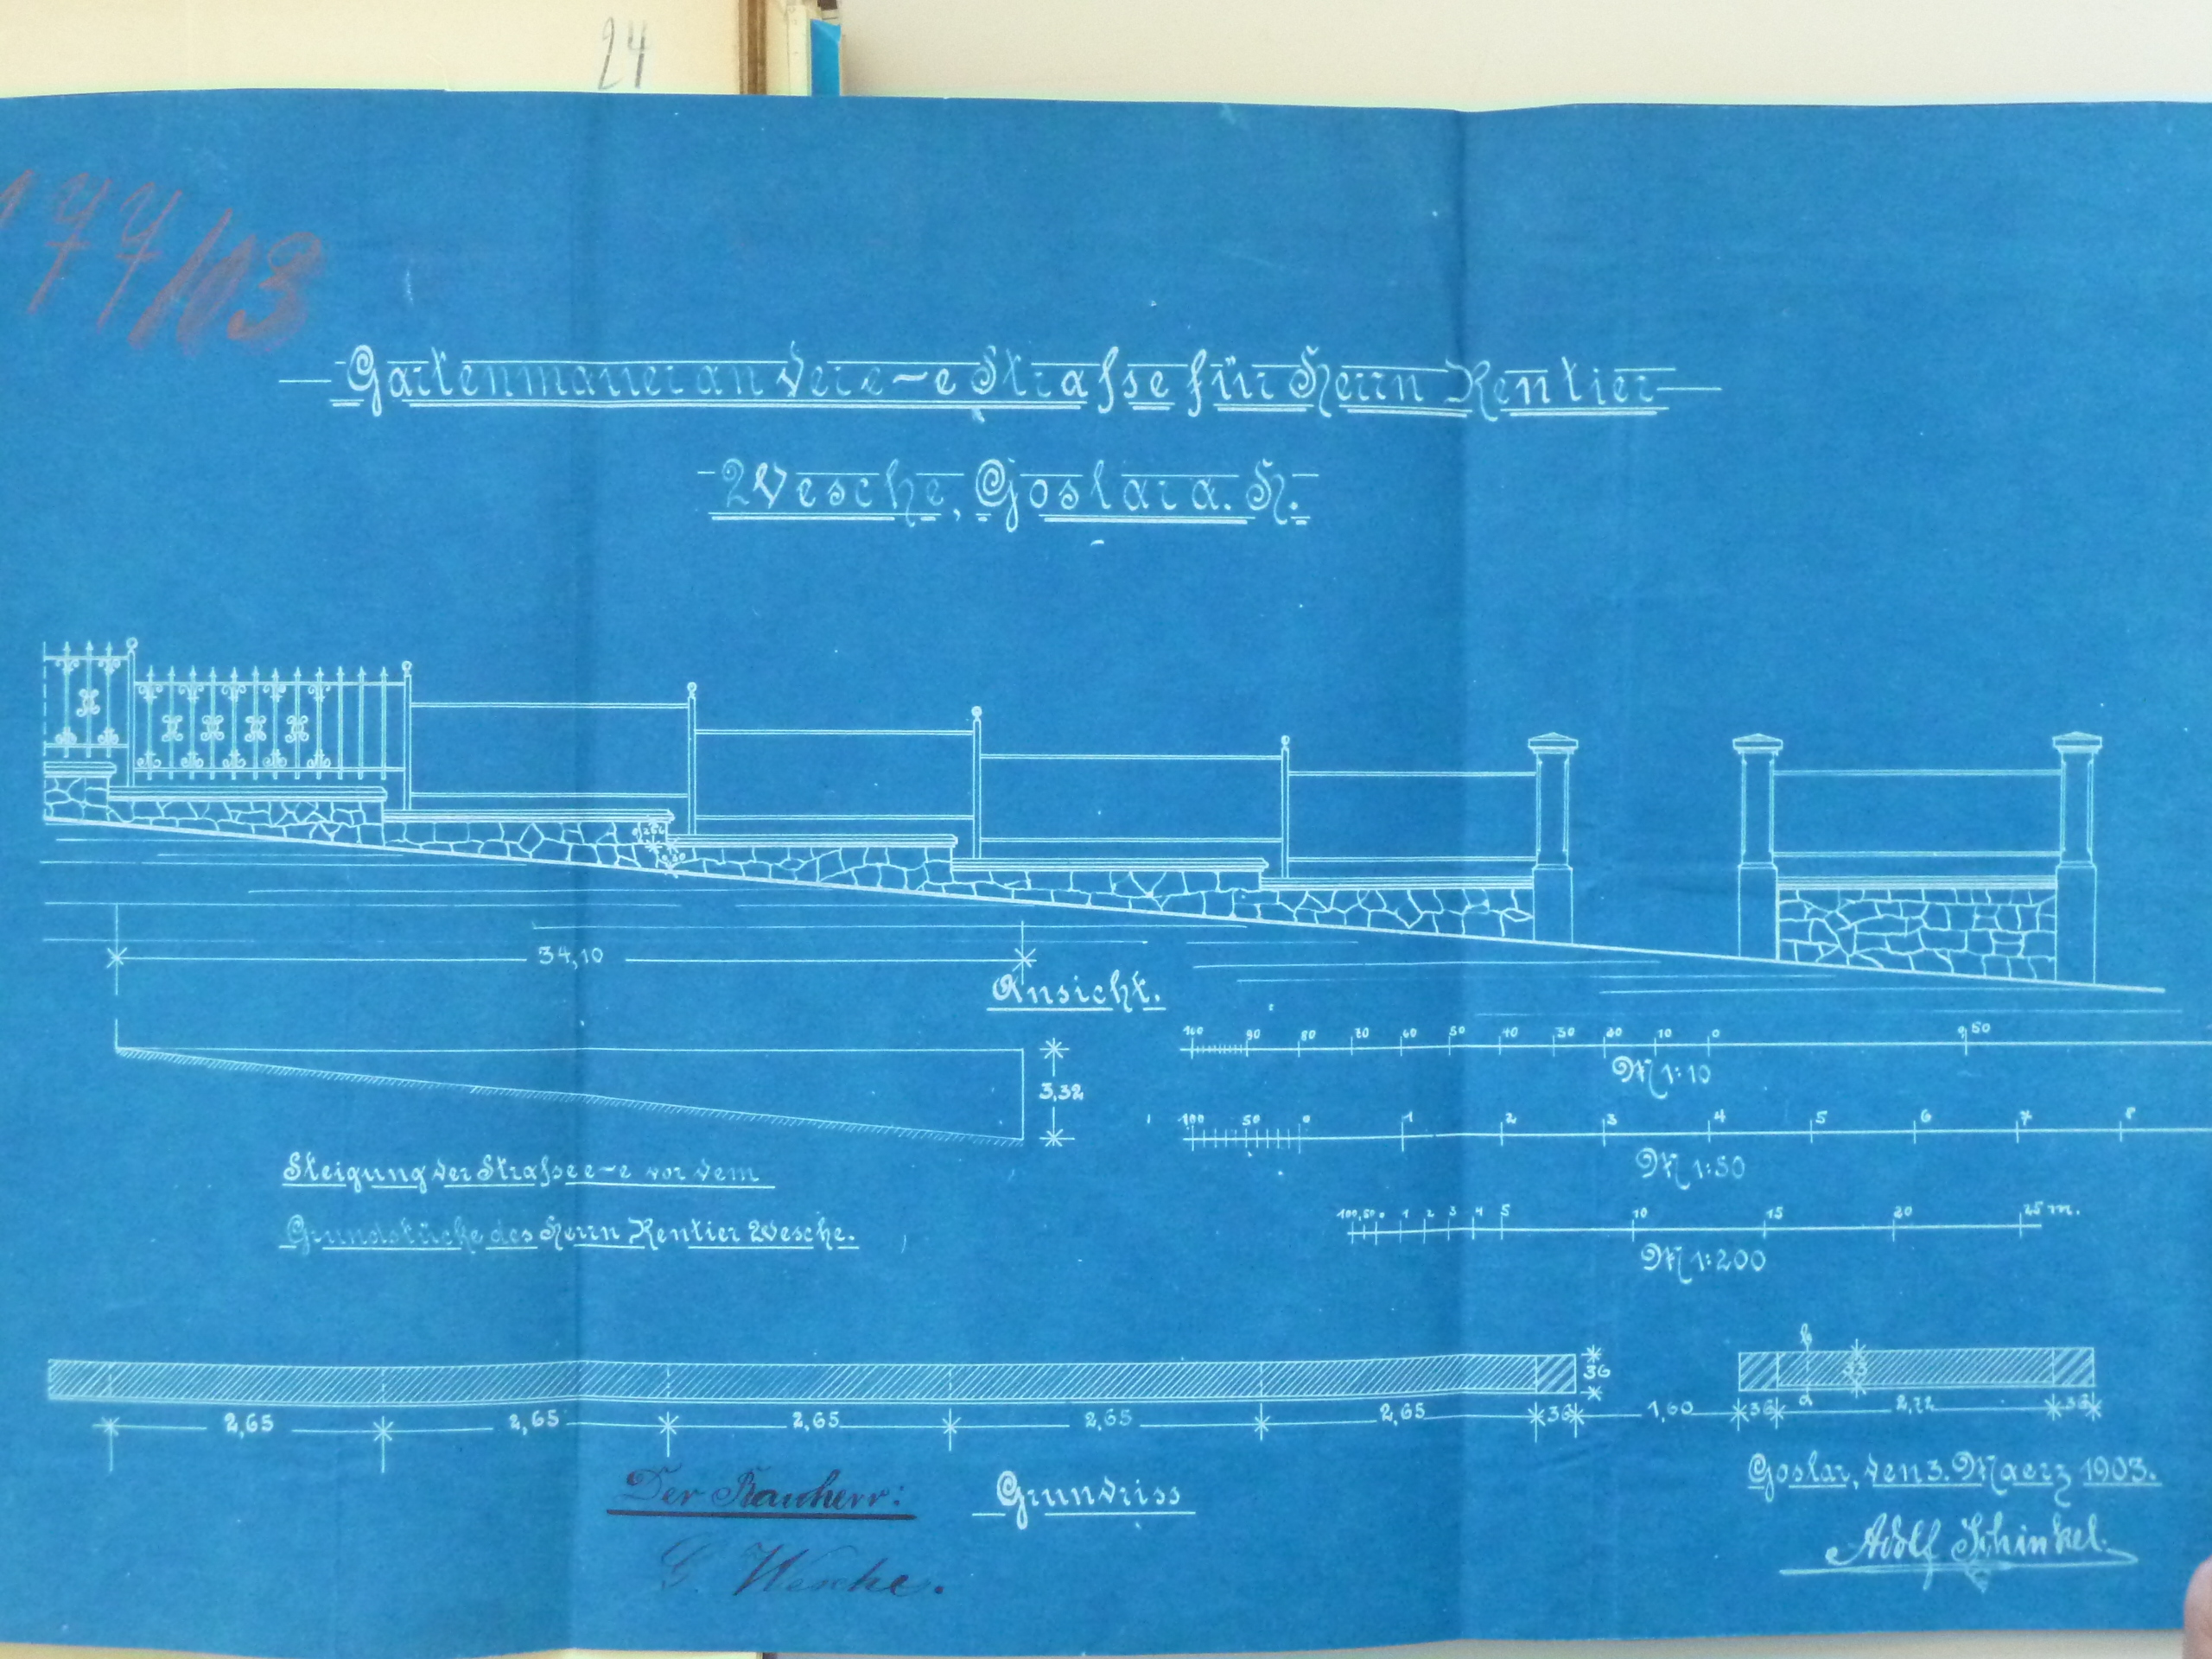 24
177/103
Gartenmauer an der e~e Strasse für Herrn Rentier
Wesche, Goslar a. H.
34,10
Ansicht.
100 90 80 70 60 50 40 30 20 10 0 9,50
M 1:10
3,32
100 50 0 1 2 3 4 5 6 7 8
M 1:50
Steigung der Strasse e~e vor dem
Grundstücke des Herrn Rentier Wesche.
100,50 0 1 2 3 4 5 10 15 20 25 m.
M 1:200
b
36 33
2,65 2,65 2,65 2,65 2,65 36 1,60 36 a 2,72 36
Der Bauherr: Grundriss
Goslar, den 3. Maerz 1903.
G. Wesche.
Adolf Schinkel.